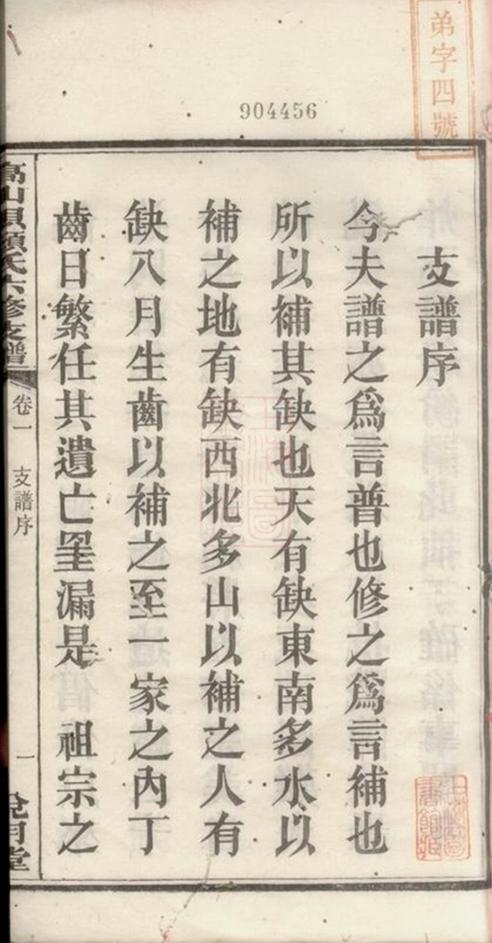 弟字四號
904456
支譜序
今夫譜之爲言普也修之爲言補也
所以補其缺也天有缺東南多水以
補之地有缺西北多山以補之人有
缺八月生齒以補之至一家之內丁
齒日繁任其遺亡罣漏是 祖宗之
氏六修支譜
卷一 支譜序
一
月堂